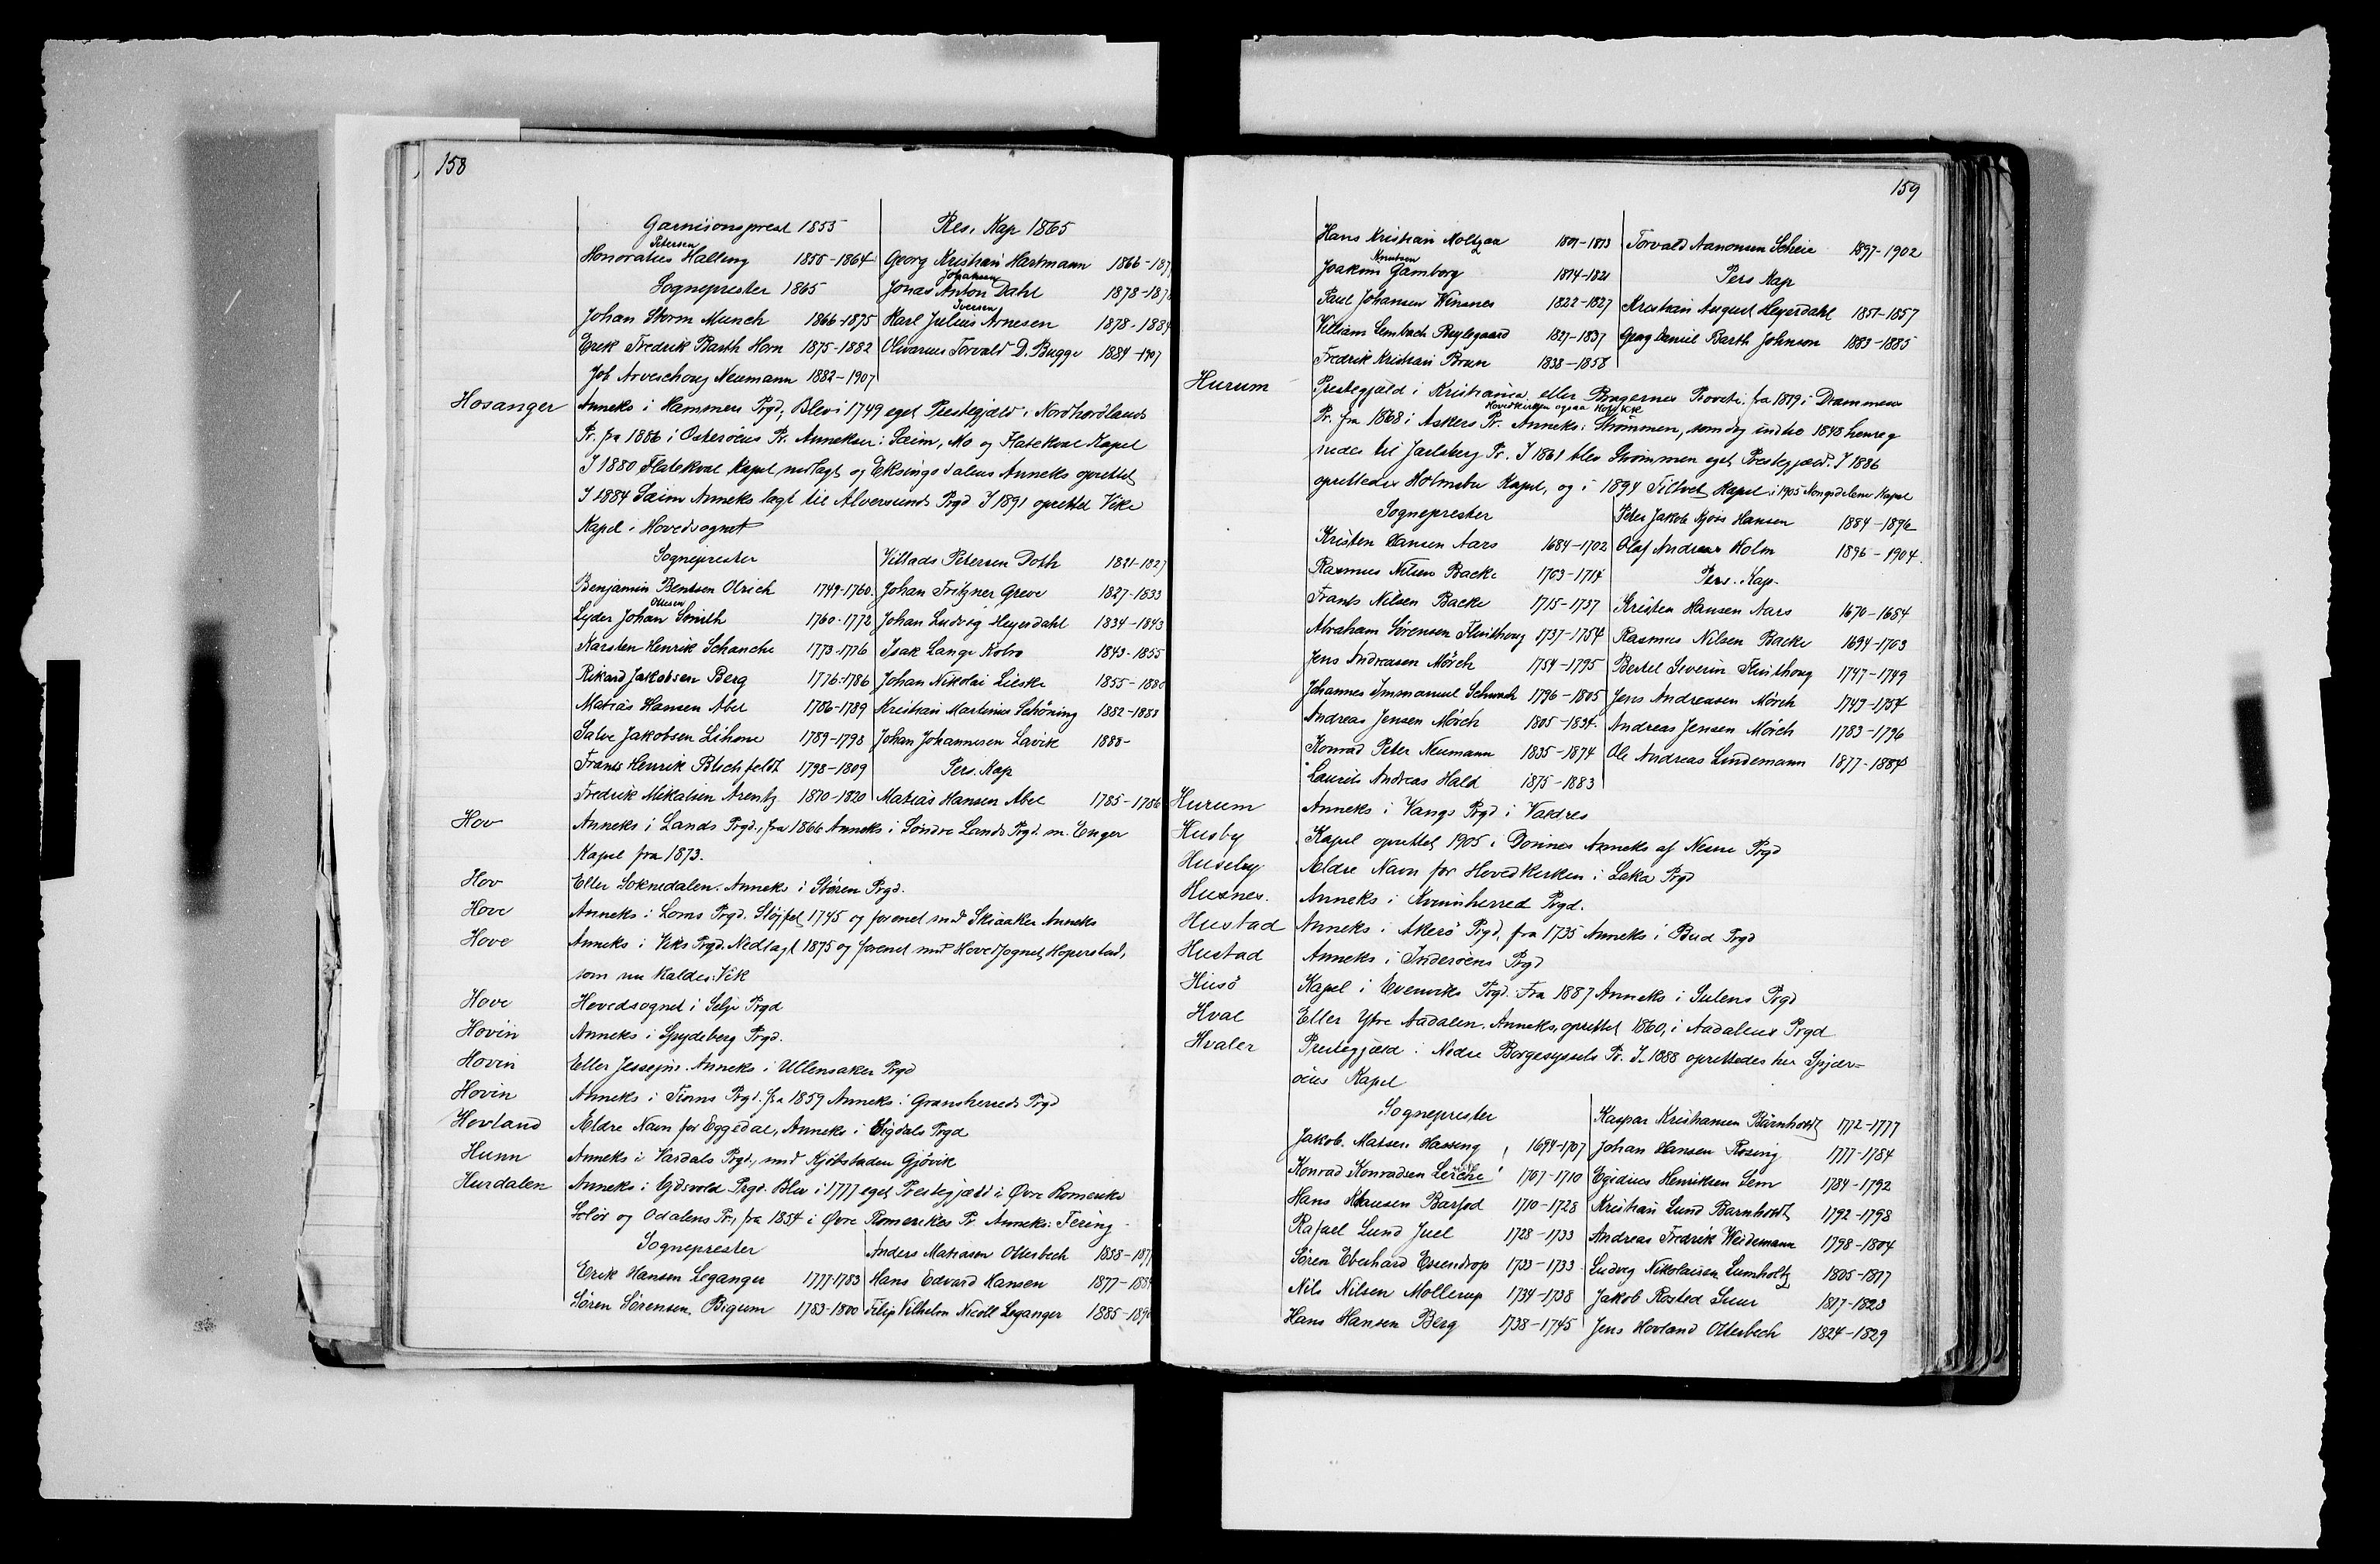 158
Garnisonsprest 1855
Honoratius Petersen Halling 1855-1864
Sogneprester 1865
Johan Storm Munch 1866-1875
Erek Fredrik Barth Horn 1875-1882
Job Arveschoug Neumann 1882-1907
Res. Kap 1865
Georg Kristian Hartmann 1866-187
Jonas Anton Johansen Dahl 1878-187
Karl Julius Iversen Arnesen 1878-1884
Olivarius Torvald D. Bugge 1884-1907
Hosanger Anneks i Hammers Prgd, Blev i 1749 eget Prestegjæld i Nordhordlands
Pr. fra 1886 i Osterøens Pr. Annekser: Sæim, Mo og Flatekval Kapel
I 1880 Flatekval Kapel nedlagt og Eksingedalens Anneks oprettet
I 1884 Sæim Anneks lagt til Alversunds Prgd I 1891 oprettet Vike
Kapel i Hovedsognet
Sogneprester
Benjamin Bentsen Olrich 1749-1760
Lyder Johan Ottesen Smith 1760-1772
Karsten Henrik Schanche 1773-1776
Rikard Jakobsen Berg 1776-1786
Matias Hansen Abel 1786-1789
Salve Jakobsen Lihme 1789-1798
Frants Henrik Blichfeldt 1798-1809
Fredrik Mikalsen Arentz 1810-1820
Villads Petersen Doth 1821-1827
Johan Fritzner Greve 1827-1833
Johan Ludvig Heyerdahl 1834-1843
Isak Lange Kobro 1843-1855
Johan Nikolai Lieske 1855-1880
Kristian Martinius Schöning 1882-1888
Johan Johannesen Lavik 1888-
Pers. Kap
Matias Hansen Abel 1785-1786
Hov Anneks i Lands Prgd., fra 1866 Anneks i Søndre Lands Prgd. m. Enger
Kapel fra 1873.
Hov Eller Soknedalen. Anneks i Støren Prgd.
Hove Anneks i Loms Prgd. Sløjfet 1745 og forenet med Skiaaker Anneks
Hove Anneks i Viks Prgd. Nedlagt 1875 og forenet med Hovedsognet Hoperstad,
som nu kaldes Vik
Hove Hovedsognet i Selje Prgd
Hovin Anneks i Spydeberg Prgd.
Hovin Eller Jessejm. Anneks i Ullensaker Prgd
Hovin Anneks i Tinns Prgd. fra 1859 Anneks i Gransherreds Prgd
Hovland Ældre Navn for Eggedal, Anneks i Sigdals Prgd
Hunn Anneks i Vardals Prgd., med Kjøbstaden Gjøvik
Hurdalen Anneks i Ejdsvold Prgd. Blev i 1777 eget Prestegjæld i Øvre Romerike
Solør og Odalens Pr., fra 1854 i Øvre Romerikes Pr. Anneks: Fering
Sogneprester
Erik Hansen Leganger 1777-1783
Søren Sørensen Bigum 1783-1800
Anders Matiasen Otterbech 1858-187
Hans Edvard Hansen 1877-1884
Filip Vilhelm Nicoll Leganger 1885-189
159
Hans Kristian Moltzau 1801-1813
Joakim Knutsen Gamborg 1814-1821
Paul Johansen Winsnes 1822-1827
Villiam Lembach Reylegaard 1827-1837
Fredrik Kristian Brun 1838-1858
Torvald Aanonsen Scheie 1897-1902
Pers Kap
Kristian August Heyerdahl 1851-1857
Georg Daniel Barth Johnson 1883-1885
Hurum Prestegjæld i Kristiania eller Bragernes Provsti fra 1819 i Drammens
Pr. fra 1868 i Askers Pr. Anneks: Strømmen, som dog indtil 1848 henreg
Hovedkirken ogsaa Hofs KK
nedes til Jarlsberg Pr. I 1861 blev Strømmen eget Prestegjæld. I 1886
oprettedes Holmsbu Kapel, og i 1894 Filtvet Kapel i 1905 Kongsdelene Kapel
Sogneprester
Kristen Hansen Aars 1684-1702
Rasmus Nilsen Backe 1703-1714
Frants Nilsen Backe 1715-1737
Abraham Sørensen Flinthoug 1737-1754
Jens Andreasen Mörch 1754-1795
Johannes Immanuel Schwach 1796-1805
Andreas Jensen Mörch 1805-1834
Konrad Peter Neumann 1835-1874
Laurits Andreas Hald 1875-1883
Peter Jakob Njøss Hansen 1884-1896
Olaf Andreas Holm 1896-1904
Pers. Kap.
Kristen Hansen Aars 1670-1684
Rasmus Nilsen Backe 1694-1703
Bertel Severin Flinthoug 1747-1749
Jens Andreasen Mörch 1749-1754
Andreas Jensen Mörch 1783-1796
Ole Andreas Lindemann 1877-1884
Hurum Anneks i Vangs Prgd i Valdres
Husby Kapel oprettet 1905 i Dønnes Anneks af Nesne Prgd
Huseby Ældre Navn for Hovedkirken i Leka Prgd
Husnes. Anneks i Kvinnherred Prgd.
Hustad Anneks i Akerø Prgd, fra 1735 Anneks i Bud Prgd
Hustad Anneks i Inderøens Prgd
Husö Kapel i Evenviks Prgd. Fra 1887 Anneks i Sulens Prgd
Hval Eller Ytre Aadalen. Anneks, oprettet 1860, i Aadalens Prgd
Hvaler Prestegjæld i Nedre Borgesyssels Pr. I 1888 oprettedes her Spjær-
øens Kapel
Sogneprester
Jakob Matsen Hassing 1694-1707
Konrad Konradsen Lerche 1707-1710
Hans Klausen Barfod 1710-1728
Rafael Lund Juel 1728-1733
Søren Eberhard Essendrop 1733-1733
Nils Nilsen Mollerup 1734-1738
Hans Hansen Berg 1738-1745
Kaspar Kristiansen Bärnholdt 1772-1777
Johan Hansen Rosing 1777-1784
Egidius Henriksen Lem 1784-1792
Kristian Lund Barnholdt 1792-1798
Andreas Fredrik Weidemann 1798-1804
Ludvig Nikolaisen Lumholtz 1805-1817
Jakob Rosted Suur 1817-1823
Jens Hovland Otterbech 1824-1829